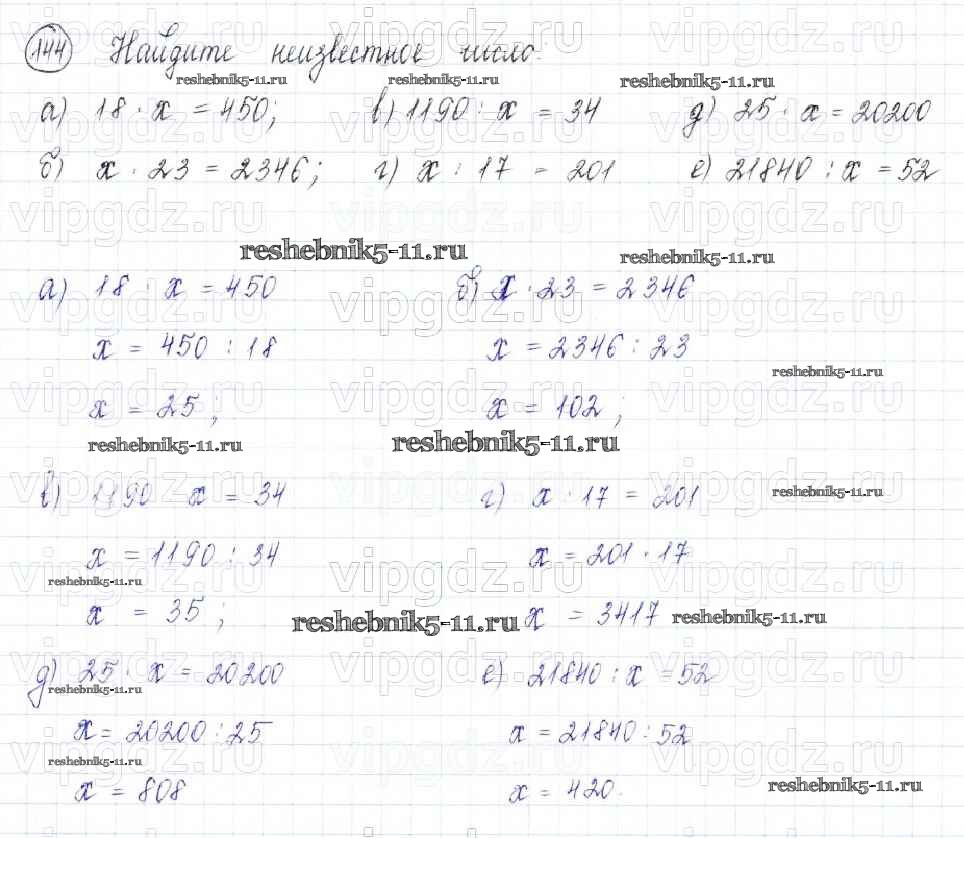 144 Найдите неизвестное число.
reshebnik5-11.ru reshebnik5-11.ru reshebnik5-11.ru
а) 18 · x = 450; в) 1190 : x = 34 д) 25 · x = 20200
б) x · 23 = 2346; г) x : 17 = 201 е) 21840 : x = 52
vipgdz.ru vipgdz.ru vipgdz.ru
reshebnik5-11.ru reshebnik5-11.ru
а) 18 · x = 450 б) x · 23 = 2346
x = 450 : 18 x = 2346 : 23
reshebnik5-11.ru
x = 25; x = 102;
reshebnik5-11.ru reshebnik5-11.ru
в) 1190 x = 34 г) x · 17 = 201
reshebnik5-11.ru
x = 1190 : 34 x = 201 · 17
reshebnik5-11.ru
x = 35; x = 3417
reshebnik5-11.ru reshebnik5-11.ru
д) 25 · x = 20200 е) 21840 : x = 52
reshebnik5-11.ru
x = 20200 : 25 x = 21840 : 52
reshebnik5-11.ru
x = 808 x = 420.
reshebnik5-11.ru